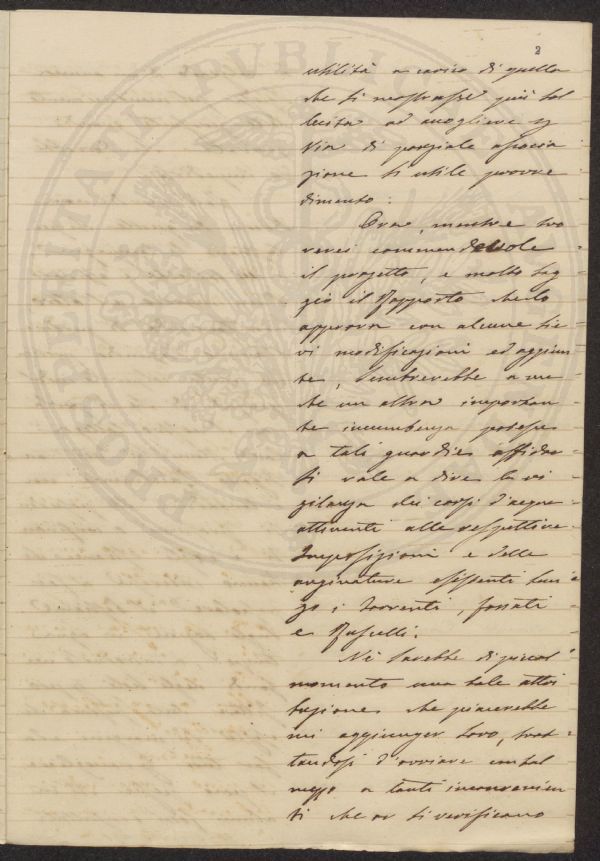 2
utilità a carico di quella
che si mostrasse più sol
lecita ad accogliere
via di parziale associa
zione sì utile provve
dimento.
Ora, mentre tro
verei commendevole
il progetto, e molto sag
gio il Rapporto che lo
approva con alcune lie-
vi modificazioni ed aggiun
te, sembrerebbe a me
che un altra importan-
te incumbenza potesse
a tali guardie affidar
si vale a dire la vi
gilanza dei corsi d'acqua
attinenti alle respettive
Imposizioni e delle
arginature esistenti lun
go i torrenti, fossati
e Ruscelli.
Nè sarebbe di piccol
momento una tale attri
buzione che piacerebbe
mi aggiunger loro, trat-
tandosi d'ovviare con tal
mezzo a tanti inconvenien
ti che or si verificano
PROSPERITATI PVBLIC